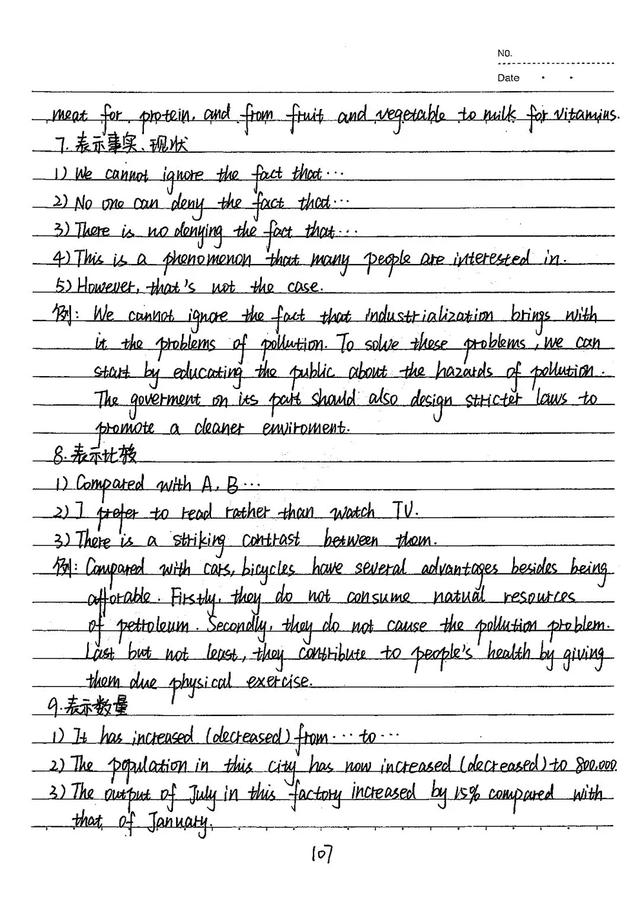 No.
Date
meat for protein, and from fruit and vegetable to milk for vitamins.
7. 表示事实、现状
1) We cannot ignore the fact that…
2) No one can deny the fact that…
3) There is no denying the fact that…
4) This is a phenomenon that many people are interested in.
5) However, that's not the case.
例: We cannot ignore the fact that industrialization brings with
it the problems of pollution. To solve these problems, we can
start by educating the public about the hazards of pollution.
The goverment on its part should also design stricter laws to
promote a cleaner enviroment.
8. 表示比较
1) Compared with A, B…
2) I prefer to read rather than watch TV.
3) There is a striking contrast between them.
例: Compared with cars, bicycles have several advantages besides being
afforable. Firstly, they do not consume natual resources
of petroleum. Secondly, they do not cause the pollution problem.
Last but not least, they contribute to people's health by giving
them due physical exercise.
9. 表示数量
1) It has increased (decreased) from… to…
2) The population in this city has now increased (decreased) to 800,000.
3) The output of July in this factory increased by 15% compared with
that of January.
107